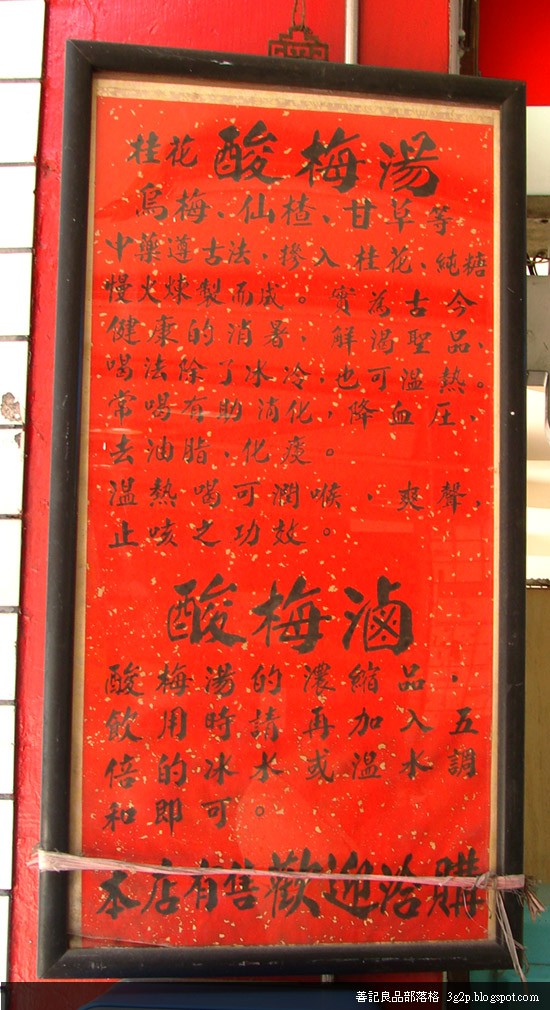 桂花 酸梅湯
烏梅、仙楂、甘草等
中藥遵古法，摻入桂花、純糖
慢火煉製而成。實為古今
健康的消暑，解渴聖品、
喝法除了冰冷，也可溫熱。
常喝有助消化，降血压，
去油脂、化痰。
溫熱喝可潤喉，爽聲，
止咳之功效。
酸梅滷
酸梅湯的濃縮品，
飲用時請再加入五
倍的冰水或溫水調
和即可。
本店有售歡迎洽購
善記良品部落格 3g2p.blogspot.com